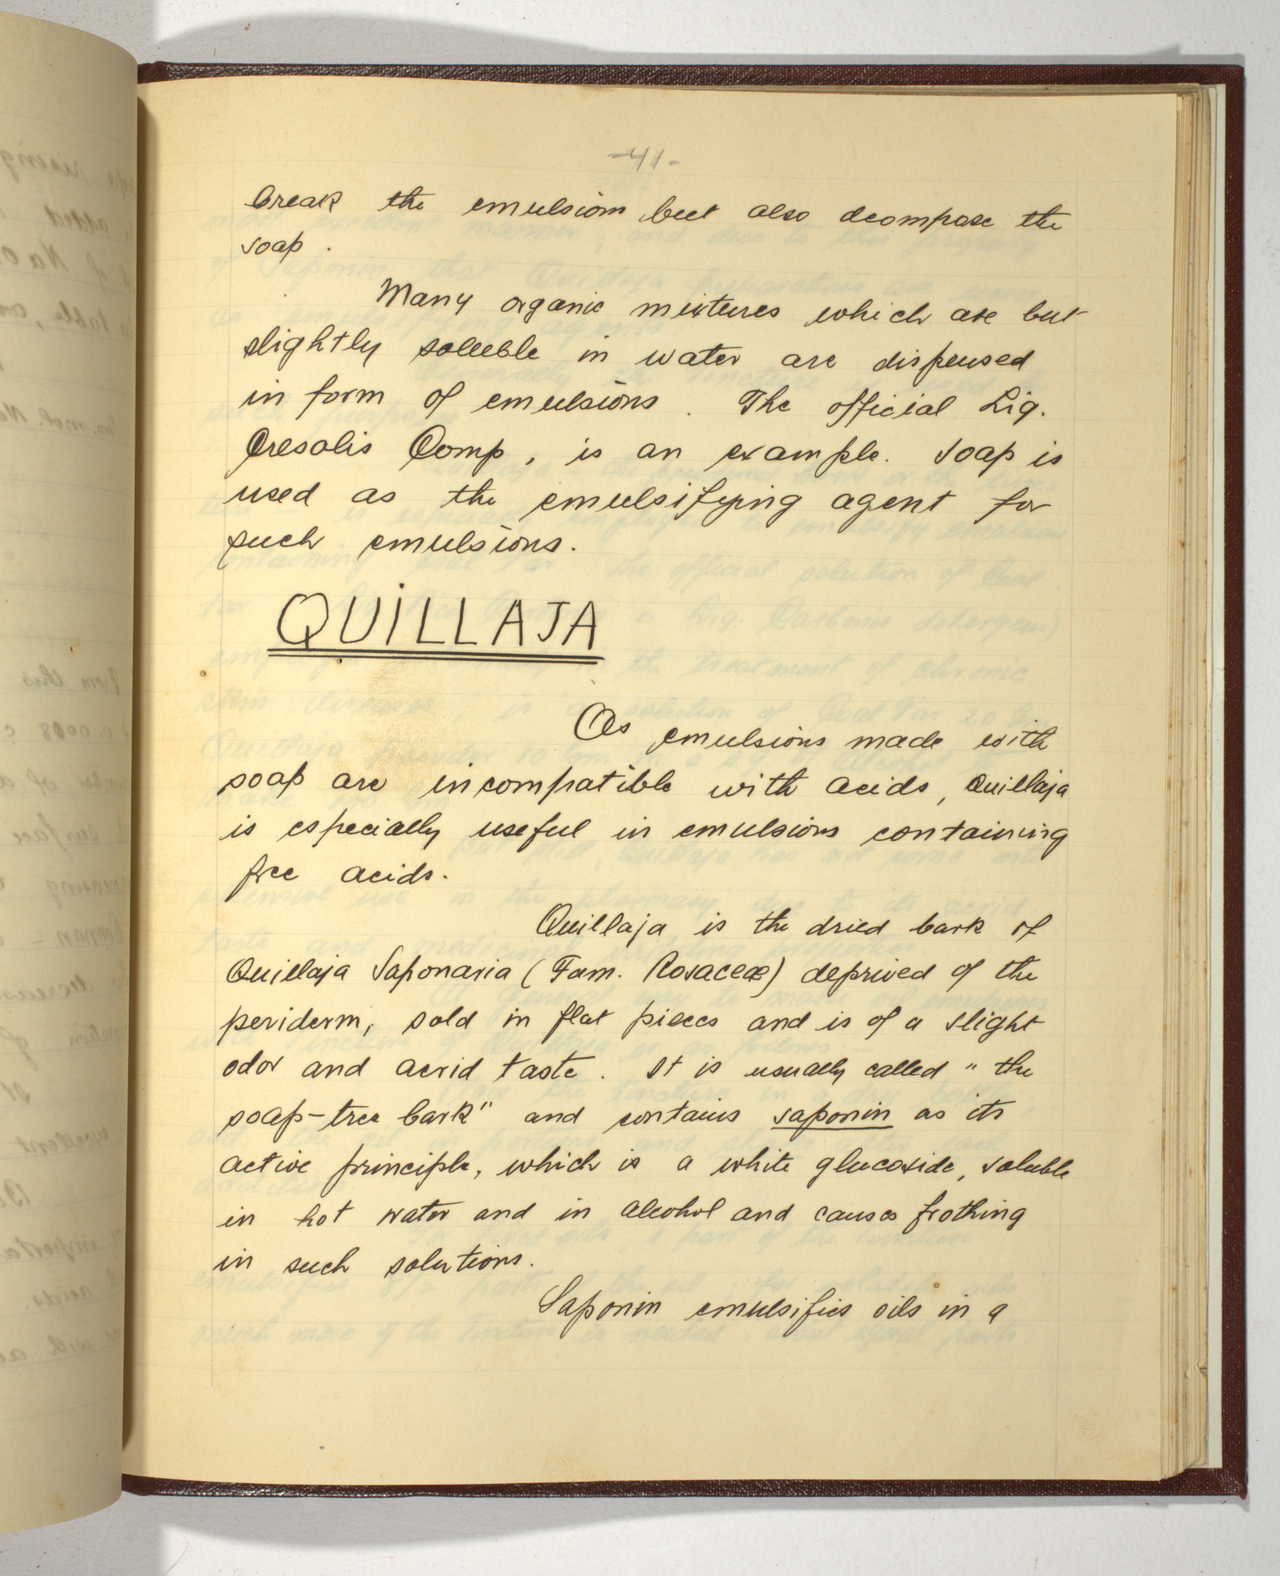 -41-
break the emulsion but also dcompose the
soap.
Many organic mixtures which are but
slightly soluble in water are dispensed
in form of emulsions. The official Liq.
Cresolis Comp, is an example. Soap is
used as the emulsifying agent for
such emulsions.
QUILLAJA
As emulsions made with
soap are incompatible with acids, Quillaja
is especially useful in emulsions containing
free acids.
Quillaja is the dried bark of
Quillaja Saponaria (Fam. Rosaceæ) deprived of the
periderm, sold in flat pieces and is of a slight
odor and acrid taste. It is usually called "the
soap-tree bark" and contains saponin as its
active principle, which is a white glucoside, soluble
in hot water and in alcohol and causes frothing
in such solutions.
Saponin emulsifies oils in a